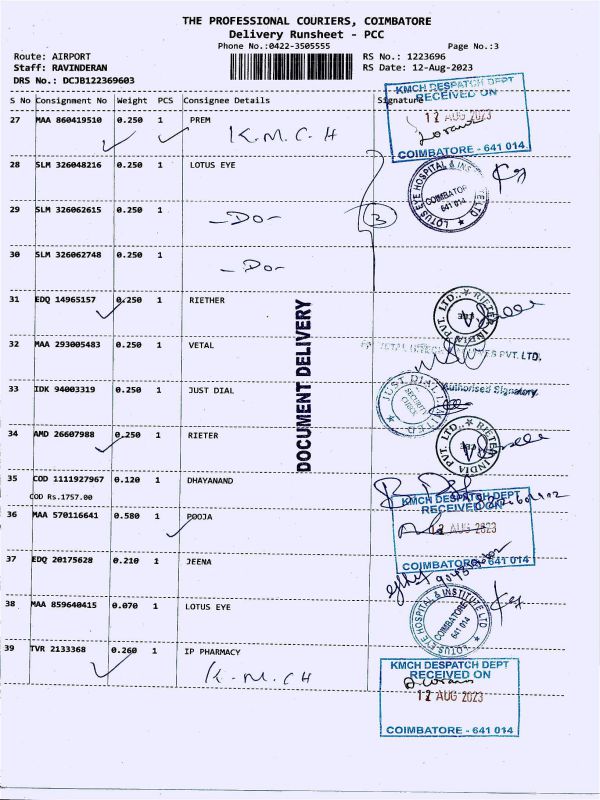 THE PROFESSIONAL COURIERS, COIMBATORE
Delivery Runsheet - PCC
Phone No.:0422-3505555
Page No.:3
Route: AIRPORT
RS No.: 1223696
Staff: RAVINDERAN
RS Date: 12-Aug-2023
DRS No.: DCJB122369603
S No Consignment No Weight PCS Consignee Details Signature
KMCH DESPATCH DEPT
RECEIVED ON
12 AUG 2023
COIMBATORE - 641 014
27 MAA 860419510 0.250 1 PREM
K.M.C.H
28 SLM 326048216 0.250 1 LOTUS EYE
LOTUS EYE HOSPITAL & INSTITUTE LTD
COIMBATORE
641 014
29 SLM 326062615 0.250 1
-Do-
3
30 SLM 326062748 0.250 1
-Do-
31 EDQ 14965157 0.250 1 RIETHER
RIETER INDIA PVT. LTD.
CBE
32 MAA 293005483 0.250 1 VETAL
PVT. LTD.
Authorised Signatory
33 IDK 94003319 0.250 1 JUST DIAL
JUST DIAL LIMITED
SECURITY
CHECK
DOCUMENT DELIVERY
34 AMD 26607988 0.250 1 RIETER
RIETER INDIA PVT. LTD.
CBE
35 COD 1111927967 0.120 1 DHAYANAND
COD Rs.1757.00
36 MAA 570116641 0.580 1 POOJA
KMCH DESPATCH DEPT
RECEIVED ON
12 AUG 2023
COIMBATORE - 641 014
37 EDQ 20175628 0.210 1 JEENA
38 MAA 859640415 0.070 1 LOTUS EYE
LOTUS EYE HOSPITAL & INSTITUTE LTD
COIMBATORE
641 014
39 TVR 2133368 0.260 1 IP PHARMACY
K.M.CH
KMCH DESPATCH DEPT
RECEIVED ON
12 AUG 2023
COIMBATORE - 641 014